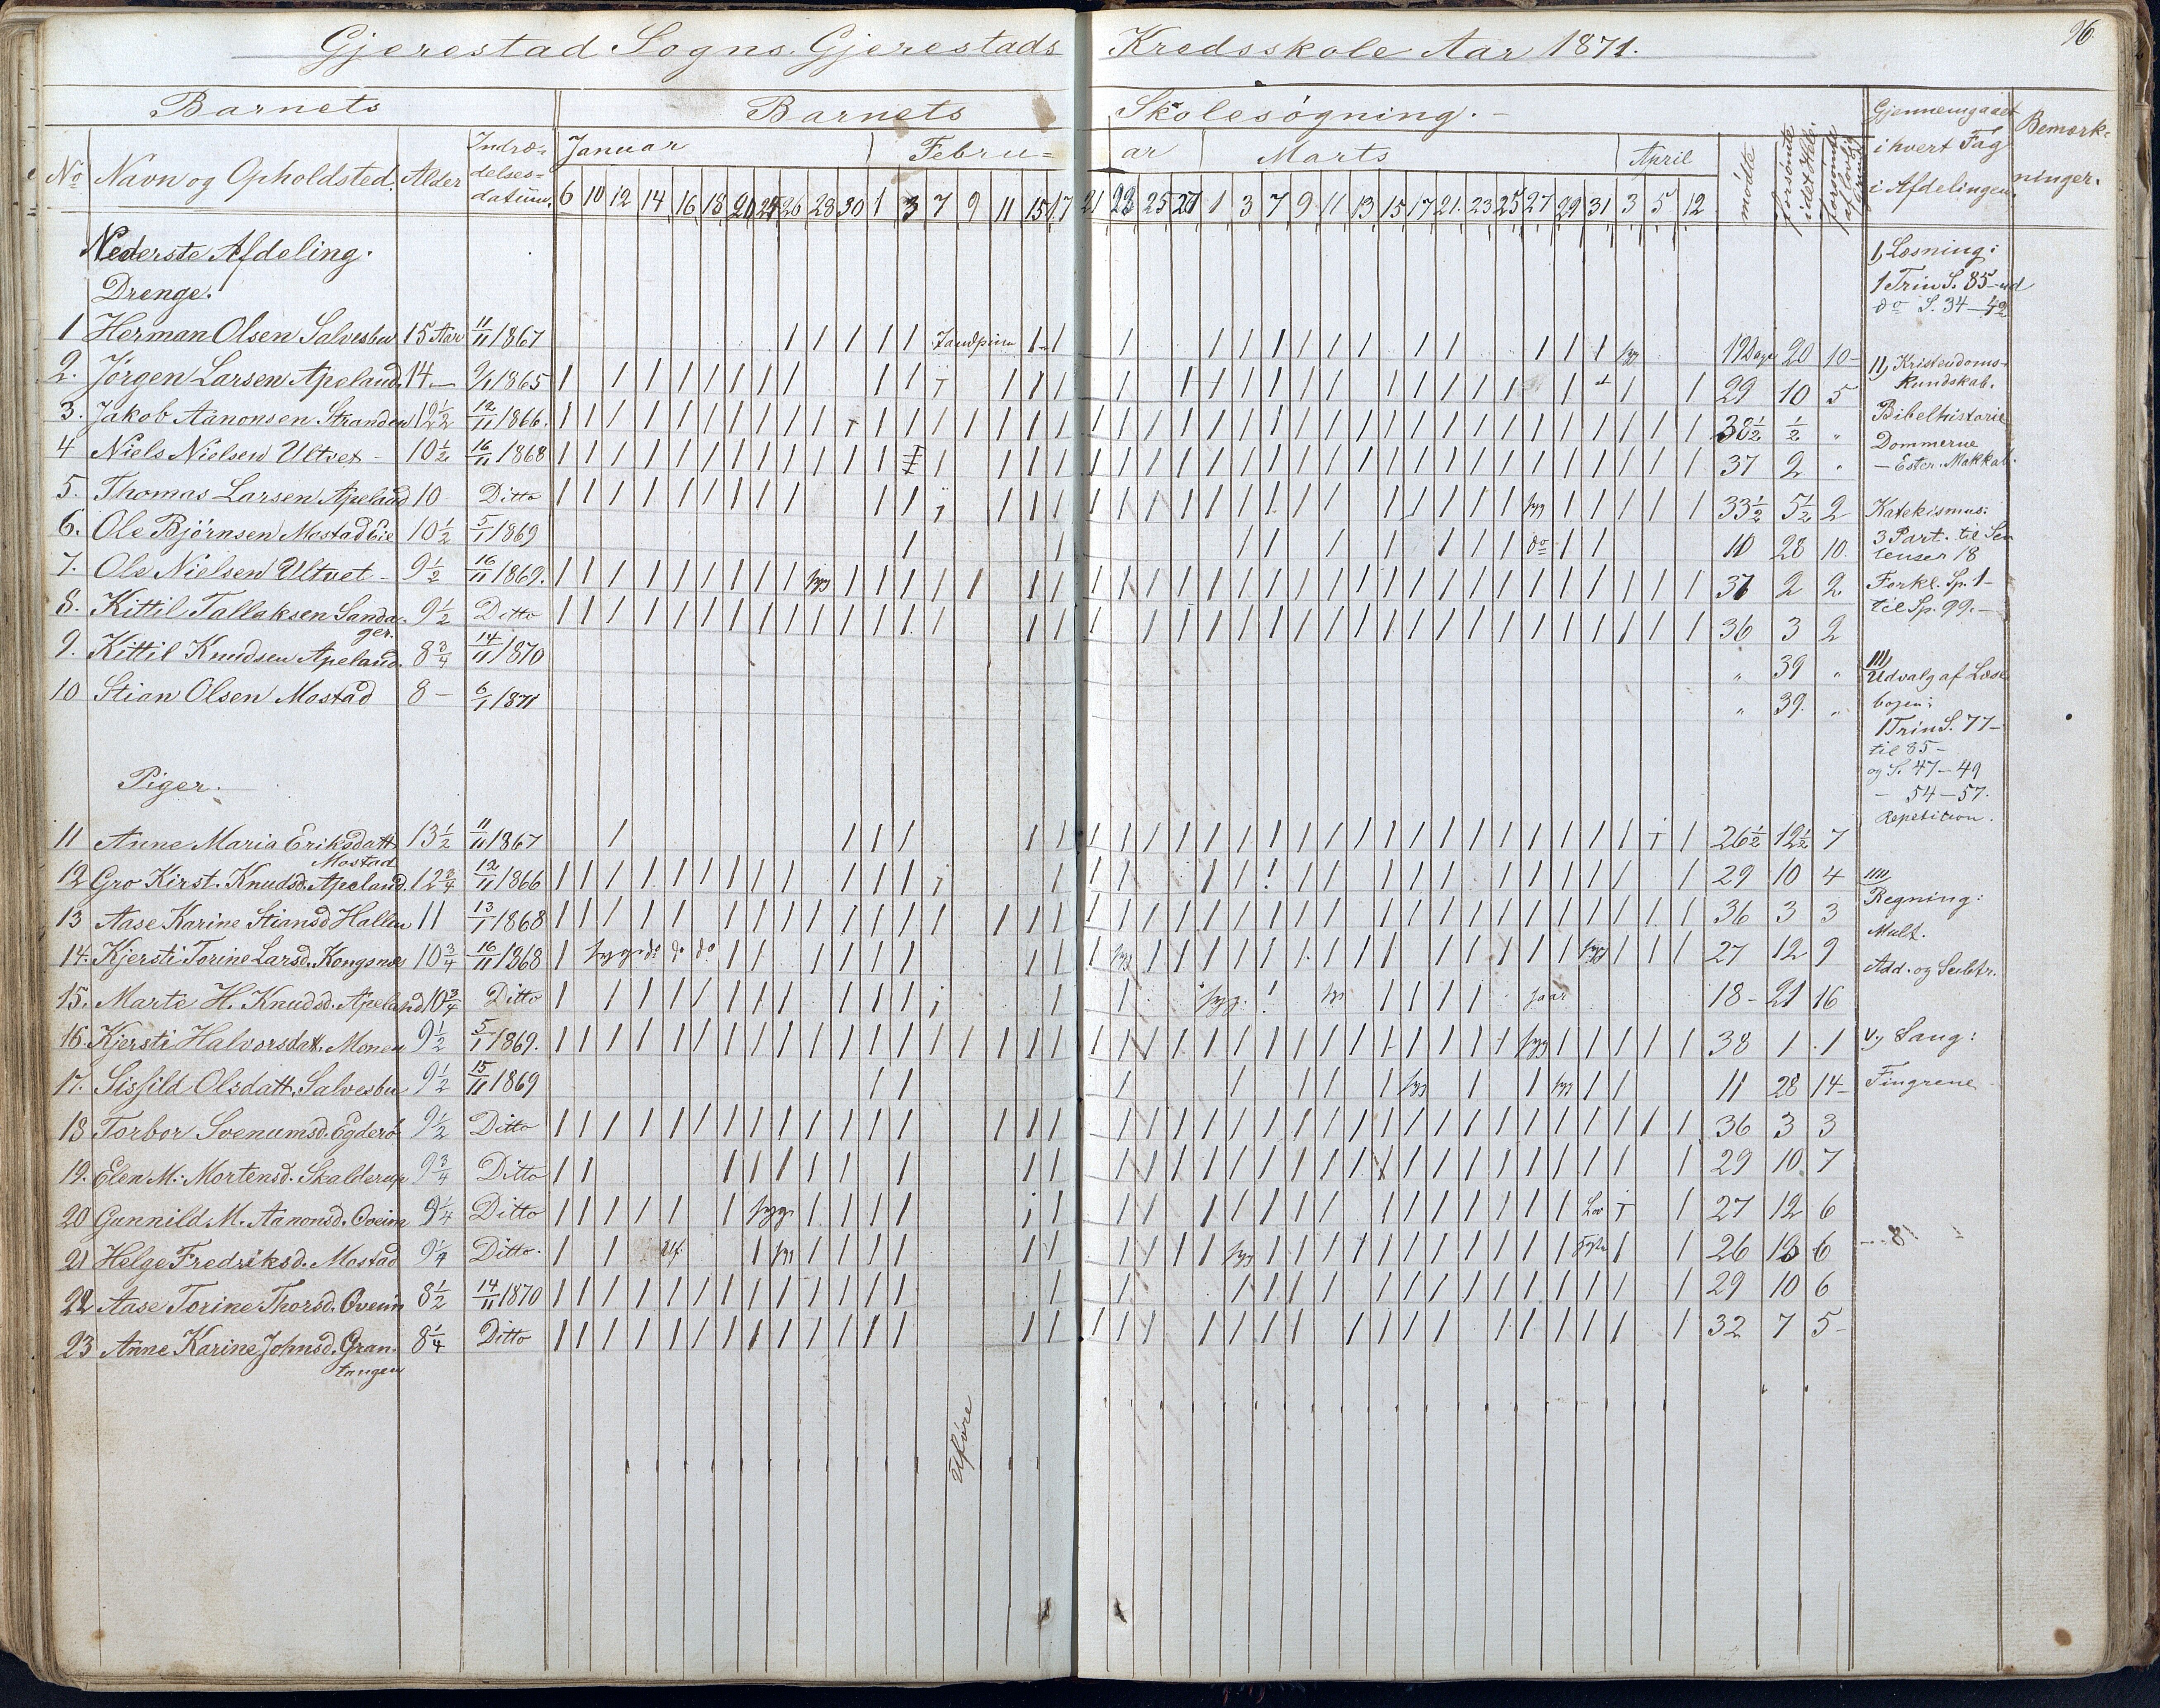 Gjerestad Sogns Gjerestads Kredsskole Aar 1871.
96.
Barnets Barnets Skolesøgning.-
No Navn og Opholdsted. Alder Indræ-
delses-
datum.
Januar Febru=ar Marts April
6 10 12 14 16 18 20 24 26 28 30 1 3 7 9 11 15 17 21 23 25 27 1 3 7 9 11 13 15 17 21. 23 25 27 29 31 3 5 12
mødte forsømte i det Hele. forsømte af lovlig Grund
Gjennemgaaet
i hvert Fag
i Afdelingen.
Bemærk=
ninger.
Nederste Afdeling.
Drenge.
1 Herman Olsen Salvesbu 15 Aar 11/11 1867 Tandpine syg 19 Dage 20 10-
2. Jörgen Larsen Apeland. 14- 9/1 1865 29 10 5
3. Jakob Aanonsen Stranden 12½ 12/11 1866. 38½ ½ „
4 Niels Nielsen Ultvet - 10½ 16/11 1868 37 2 „
5. Thomas Larsen Apeland 10 Ditto syg 33½ 5½ 2
6. Ole Björnsen Mostad Eie 10½ 5/1 1869 do 10 28 10.
7. Ole Nielsen Ultvet - 9½ 16/11 1869. syg 37 2 2
8. Kittil Tallaksen Sanda-
ger. 9½ Ditto 36 3 2
9. Kittil Knudsen Apeland. 8¾ 14/11 1870 „ 39 „
10 Stian Olsen Mostad 8- 6/1 1871 „ 39. „
Piger.
11 Anne Maria Eriksdatt.
Mostad 13½ 11/11 1867 26½ 12½ 7
12 Gro Kirst. Knudsd. Apeland. 12¾ 12/11 1866 29 10 4
13 Aase Karine Stiansd Hallen 11 13/1 1868 36 3 3
14. Kjersti Torine Larsd. Kongsnæs 10¾ 16/11 1868 syg do do do syg syg 27 12 9
15. Marte H. Knudsd. Apeland 10¾ Ditto syg. syg 18- 21 16
16. Kjersti Halvorsdatt. Monen 9½ 5/1 1869. syg 38 1 1
17. Sisfild Olsdatt. Salvesbu 9½ 15/11 1869 syg syg 11 28 14-
18 Torbor Svenumsd. Egderö 9½ Ditto 36 3 3
19. Elen M. Mortensd. Skalderup 9¾ Ditto 29 10 7
20 Gunnild M. Aanonsd. Oveim 9¼ Ditto syg Lov 27 12 6
21 Helge Fredriksd. Mostad 9¼ Ditto. syg syg 26 13 6
22 Aase Torine Thorsd. Oveim 8½ 14/11 1870 29 10 6
23 Anne Karine Johnsd. Gran-
tangen 8¼ Ditto 32 7 5-
Uføre
1, Læsning:
1 Trin S. 35-ud
do S. 34-42
11, Kristendoms-
kundskab.
Bibelhistorie
Dommerne
- Ester. Makkab.
Katekismus:
3 Part. til Sen
tenser 18
Forkl. Sp. 1-
til Sp. 99.-
111,
Udvalg af Læse
bogen:
1 Trin S. 77-
til 85-
og S. 47-49
- 54-57.
Repetition.
1111,
Regning:
Mult.
Add. og Subtr.
V, Sang:
Fingrene